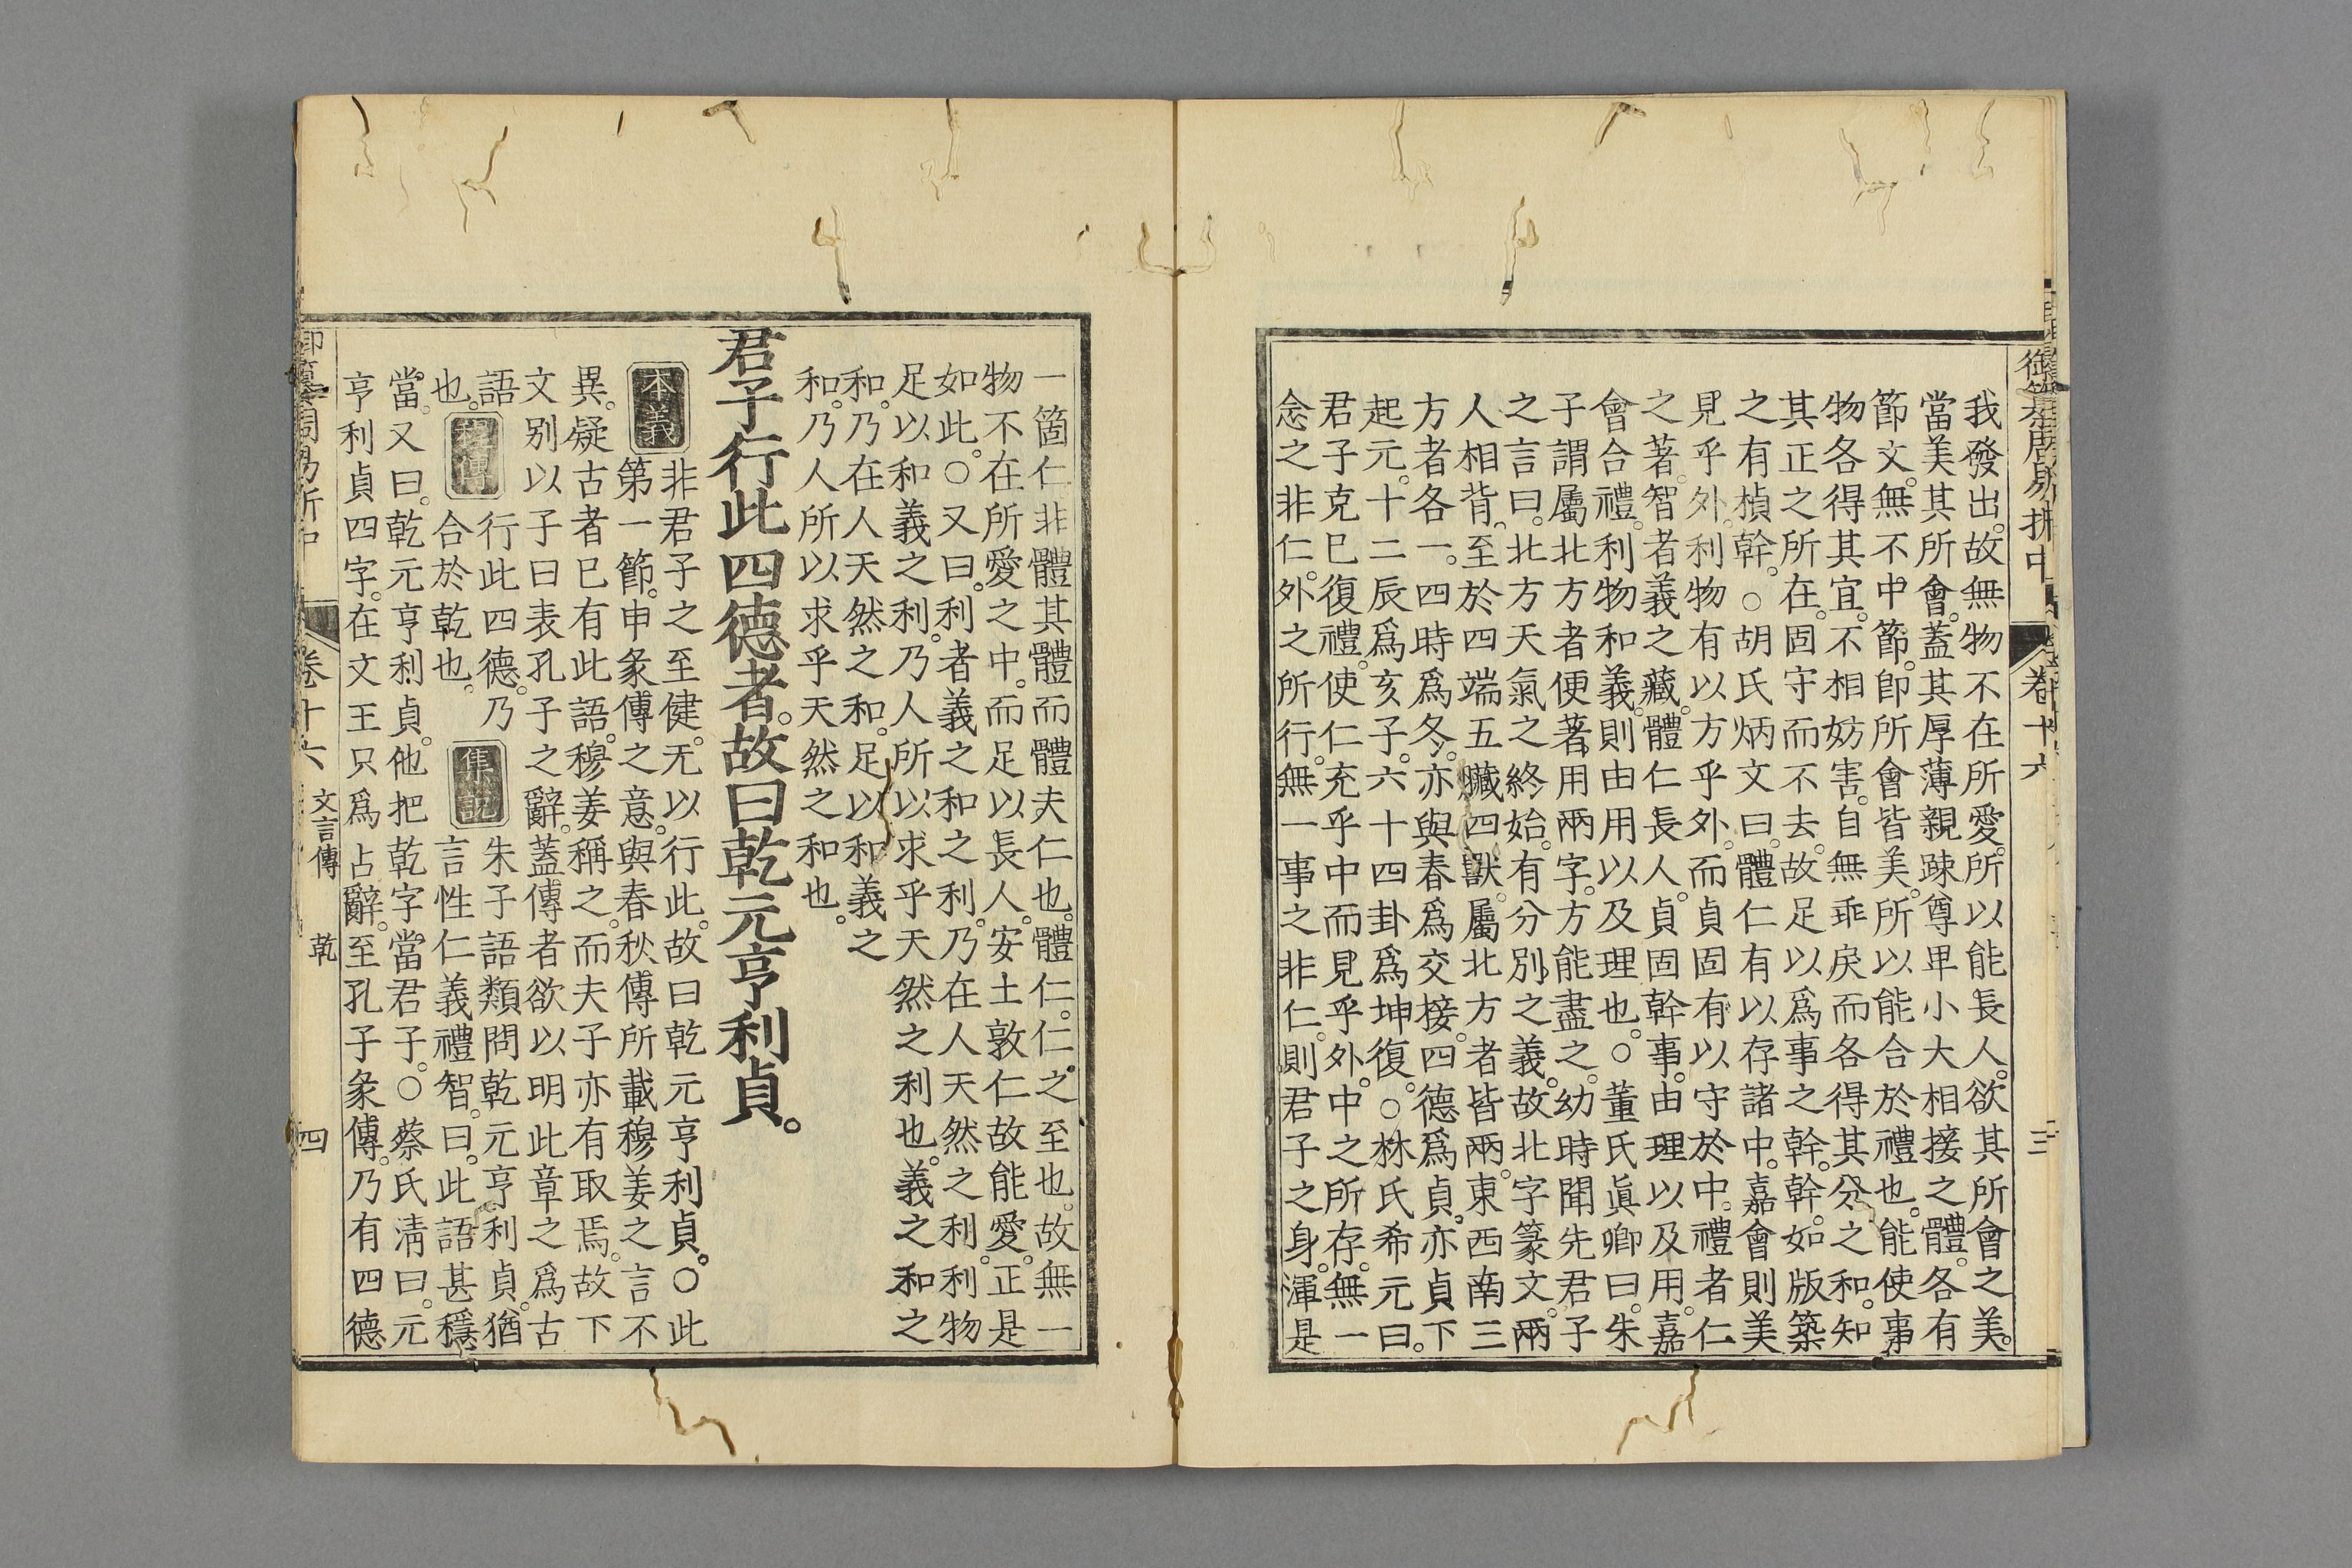 御纂周易折中 卷十六 三
我發出。故無物不在所愛。所以能長人。欲其所會之美。
當美其所會。蓋其厚薄親疎尊卑小大相接之體。各有
節文。無不中節。卽所會皆美。所以能合於禮也。能使事
物各得其宜。不相妨害。自無乖戾而各得其分之和。知
其正之所在。固守而不去。故足以爲事之幹。幹。如版築
之有楨幹。○胡氏炳文曰。體仁有以存諸中。嘉會則美
見乎外。利物有以方乎外。而貞固有以守於中。禮者仁
之著。智者義之藏。體仁長人。貞固幹事。由理以及用。嘉
會合禮。利物和義。則由用以及理也。○董氏眞卿曰。朱
子謂屬北方者便著用兩字。方能盡之。幼時聞先君子
之言曰。北方天氣之終始。有分別之義。故北字篆文。兩
人相背。至於四端五臟四獸。屬北方者皆兩。東西南三
方者各一。四時爲冬。亦與春爲交接。四德爲貞。亦貞下
起元。十二辰爲亥子。六十四卦爲坤復。○林氏希元曰。
君子克已復禮。使仁充乎中而見乎外。中之所存。無一
念之非仁。外之所行。無一事之非仁。則君子之身。渾是
一箇仁非體其體而體夫仁也。體仁。仁之至也。故無一
物不在所愛之中。而足以長人。安土敦仁故能愛。正是
如此。○又曰。利者義之和之利。乃在人天然之利。利物
足以和義之利。乃人所以求乎天然之利也。義之和之
和。乃在人天然之和。足以和義之
和。乃人所以求乎天然之和也。
君子行此四德者。故曰乾元亨利貞。
本義 非君子之至健。无以行此。故曰乾元亨利貞。○此
第一節。申彖傳之意。與春秋傳所載穆姜之言不
異。疑古者已有此語。穆姜稱之。而夫子亦有取焉。故下
文别以子曰表孔子之辭。蓋傳者欲以明此章之爲古
語
也。 程傳 行此四德。乃
合於乾也。 集說 朱子語類問乾元亨利貞。猶
言性仁義禮智。曰。此語甚穩
當。又曰。乾元亨利貞。他把乾字。當君子。○蔡氏淸曰。元
亨利貞四字。在文王只爲占辭。至孔子彖傳。乃有四德
御纂周易折中 卷十六 文言傳 乾 四